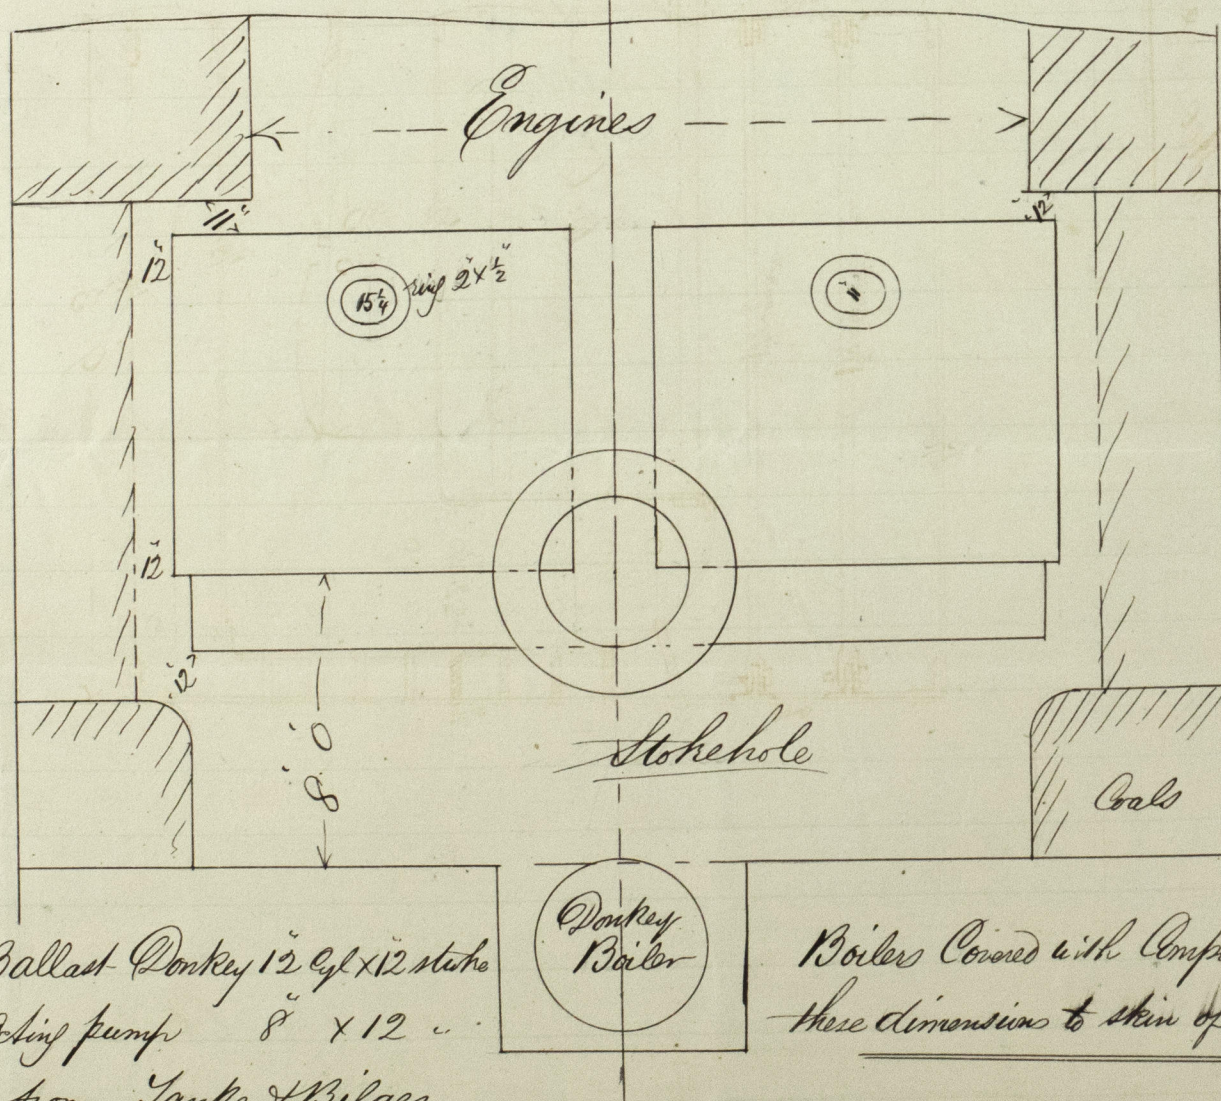 Engines
11"
"12"
12"
15¼
ring 2" x ½"
12"
"12"
8' 0"
Stokehole
Coals
Donkey
Boiler
Ballast Donkey 12" Cyl x 12" stroke
acting pump 8" x 12 "
Tanks & Bilges
Boilers Covered with
these dimensions to skin of